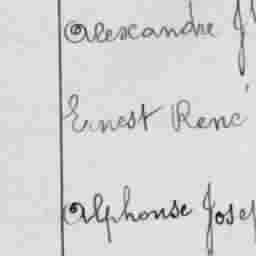 Alexandre
Ernest René
Alphonse Josep